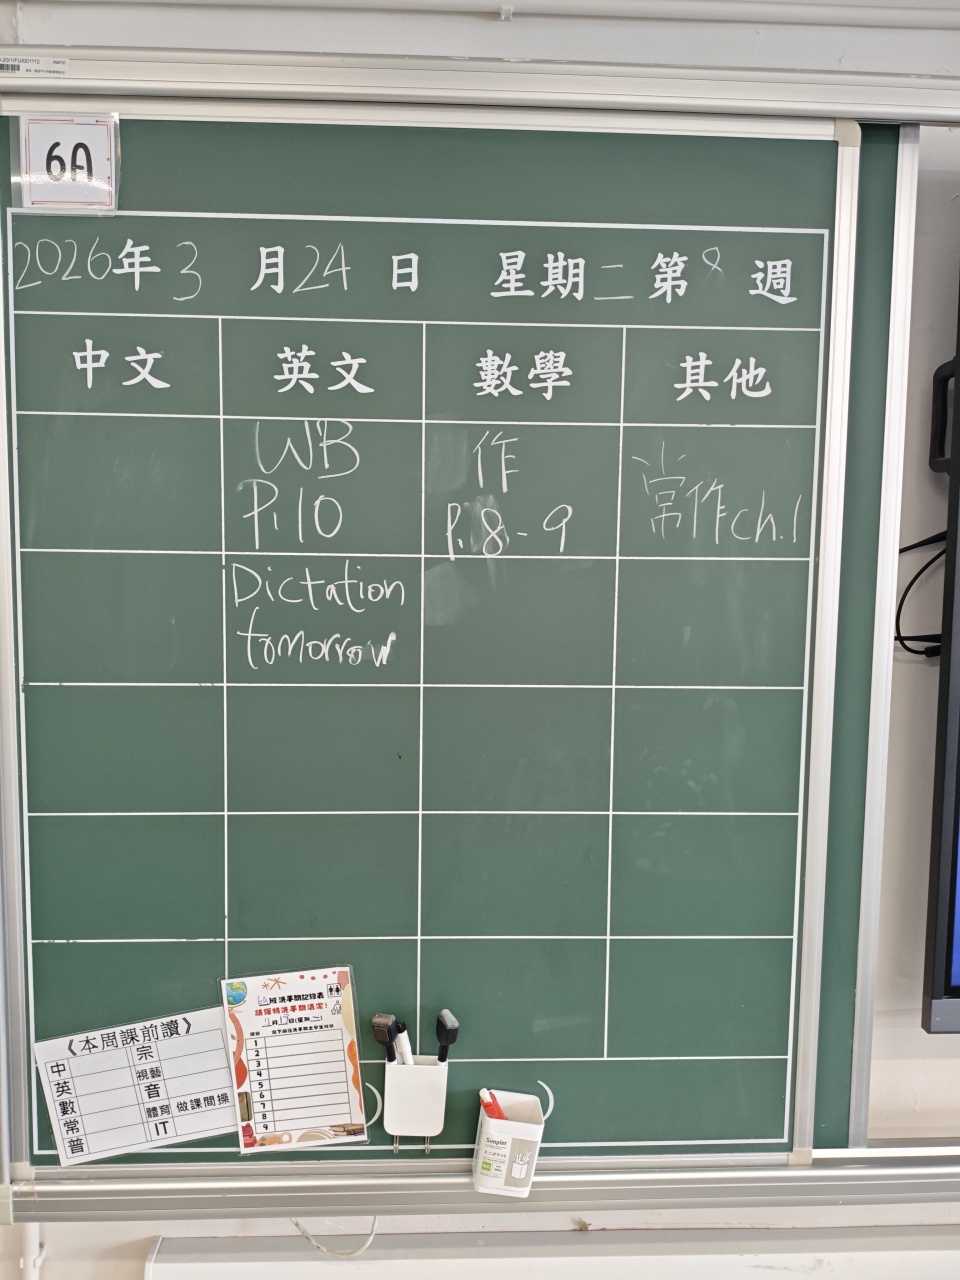 6A
2026年3月24日 星期二 第8週
中文 英文 數學 其他
WB
P.10
作
P.8-9
常作ch.1
Dictation
tomorrow
《本周課前讀》
中 宗
英 視藝
數 音
常 體育 做課間操
普 IT
6A班洗手間記錄表
請保持洗手間清潔!
1
2
3
4
5
6
7
8
9
Simpler